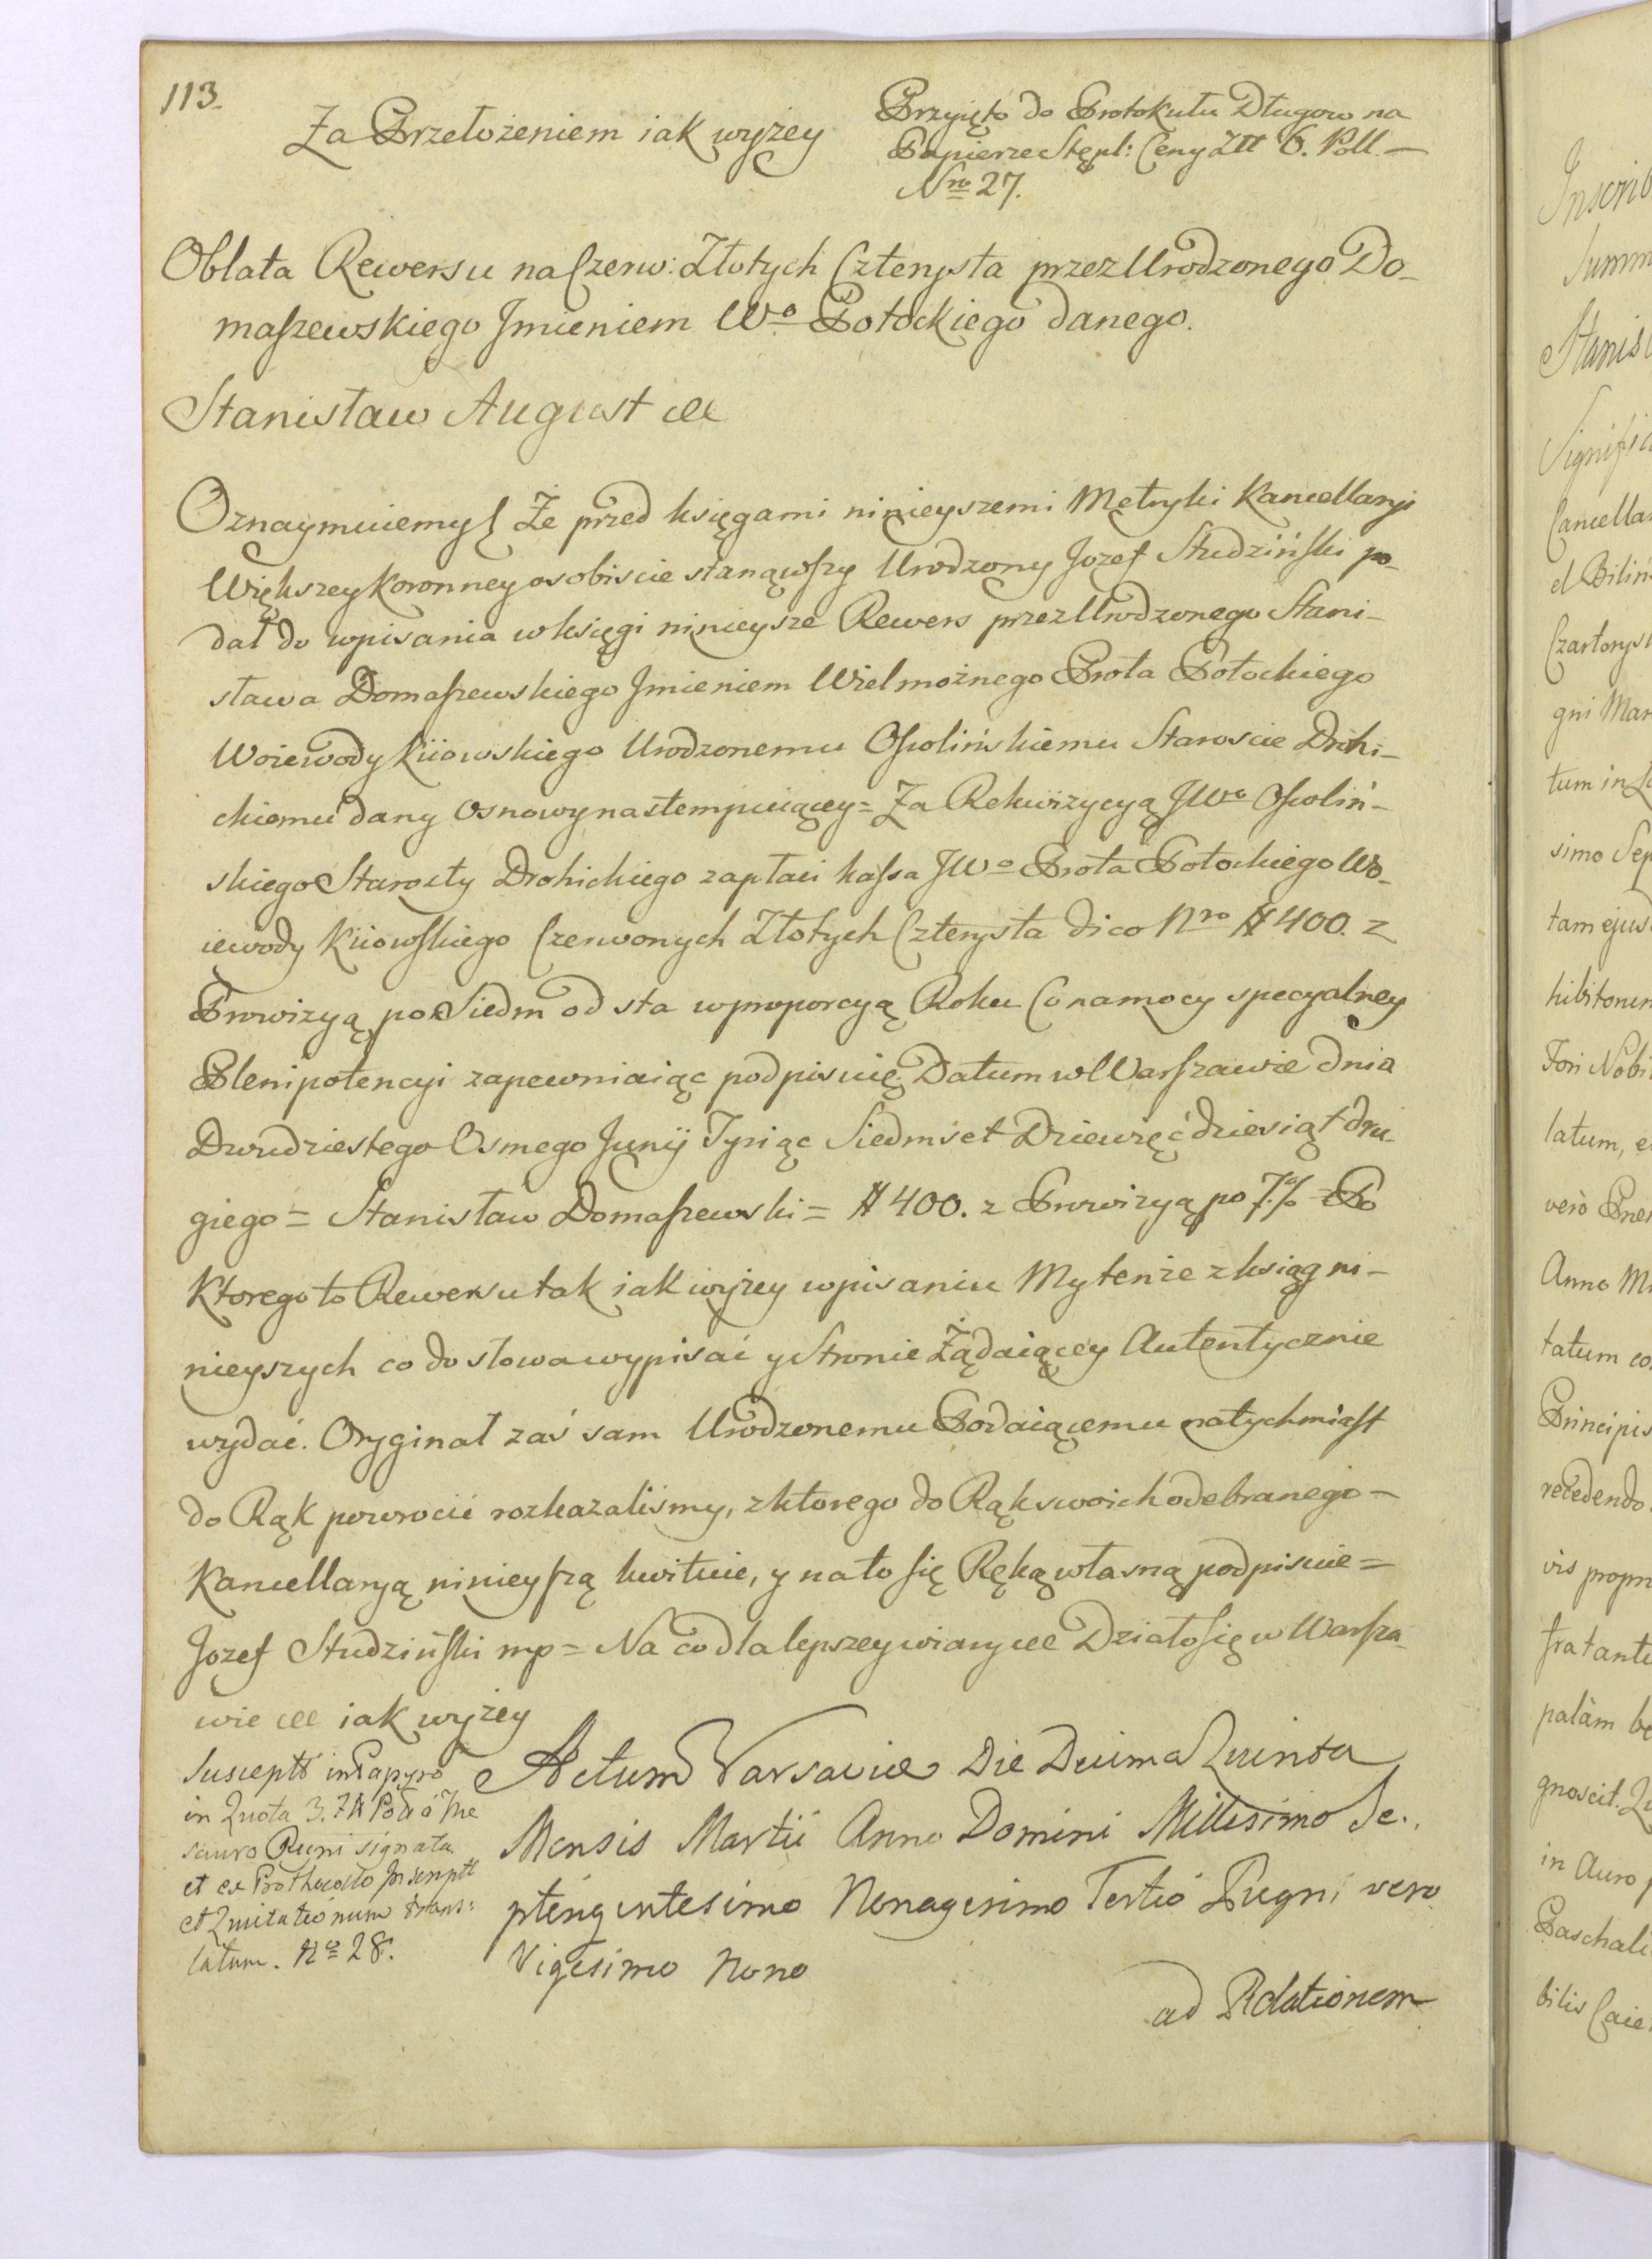 113.
Za Przełożeniem iak wyżey
Przyięto do Protokułu Długow na
Papierze Stępl: Ceny Złł 6. Poll.—
Nro 27.
Oblata Rewersu na Czerw: Złotych Czterysta przez Urodzonego Do-
maszewskiego Jmieniem Wo Potockiego danego.
Stanisław August etc
Oznaymuiemy etc Że przed księgami ninieyszemi Metryki Kancellaryi
Większey Koronney osobiscie stanąwszy Urodzony Jozef Studziński po-
dał do wpisania w księgi ninieysze Rewers przez Urodzonego Stani-
sława Domaszewskiego Jmieniem Wielmożnego Prota Potockiego
Woiewody Kiiowskiego Urodzonemu Ossolińskiemu Staroscie Drohi-
ckiemu dany osnowy nastempuiącey = Za Rekwizycyą JWo Ossoliń-
skiego Starosty Drohickiego zapłaci kassa JWo Prota Potockiego Wo-
iewody Kiiowskiego Czerwonych Złotych Czterysta dico Nro # 400. z
Prowizyą po Siedm od sta w proporcyą Roku Co na mocy specyalney
Plenipotencyi zapewniaiąc podpisuię. Datum w Warszawie dnia
Dwudziestego Osmego Junij Tysiąc Siedmset Dziewięćdziesiąt dru-
giego = Stanisław Domaszewski = # 400. z Prowizyą po 7.% = Po
Ktorego to Rewersu tak iak wyżey wpisaniu My tenże z ksiąg ni-
nieyszych co do słowa wypisać y Stronie Żądaiącey Autentycznie
wydać. Oryginał zaś sam Urodzonemu Podaiącemu natychmiast
do Rąk powrocić rozkazaliśmy, z ktorego do Rąk swoich odebranego—
Kancellaryą ninieyszą kwituie, y na to się Ręką własną podpisuie =
Jozef Studziński mp = Na co dla lepszey wiary etc Działo się w Warsza-
wie etc iak wyżey
Susceptt in Papyro
in Quota 3. Złł Pol ó The
sauro Regni signata
et ex Prothocollo Inscriptt
et Quitationum trans:
latum. No 28.
Actum Varsaviæ Die Decima Quinta
Mensis Martii Anno Domini Millesimo Se.,
ptengentesimo Nonagesimo Tertio Regni vero
Vigesimo Nono
ad Relationem